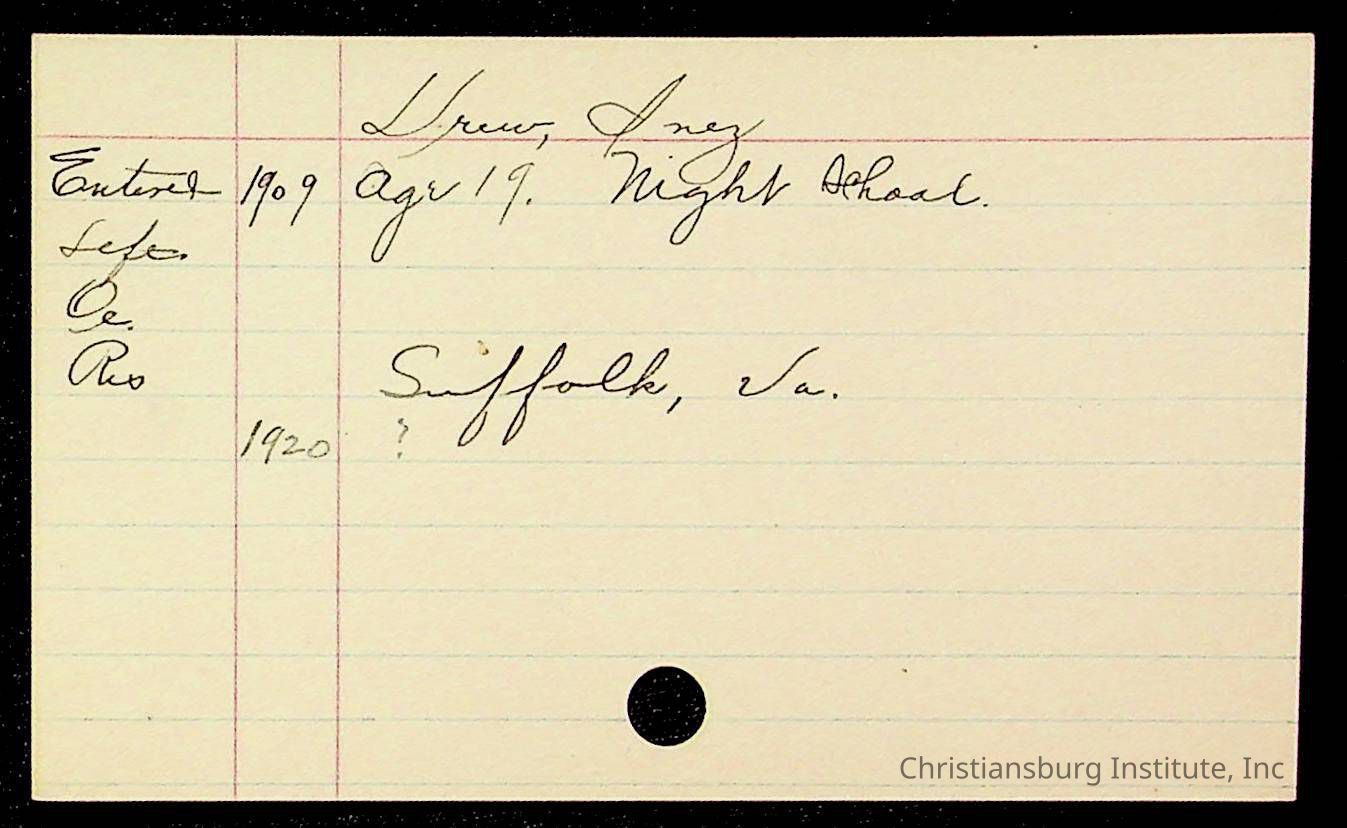 Drew, Inez
Entered 1909 Age 19. Night School.
Left.
Oc.
Res Suffolk, Va.
1920 ?
Christiansburg Institute, Inc